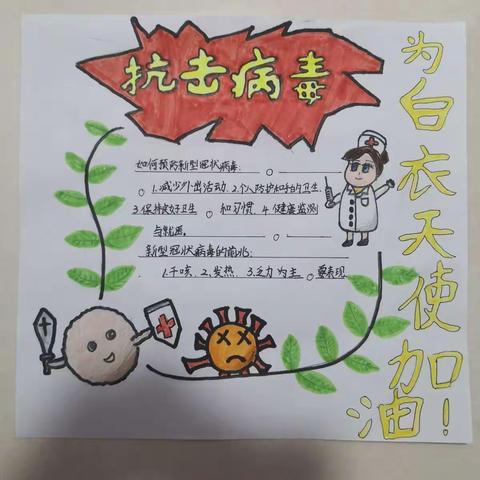 抗击病毒
如何预防新型冠状病毒:
1.减少外出活动. 2.个人防护和手的卫生.
3.保持良好卫生 和习惯. 4.健康监测
与就医。
新型冠状病毒的前兆:
1.干咳、2.发热、3.乏力为主 要表现
为白衣天使加油!